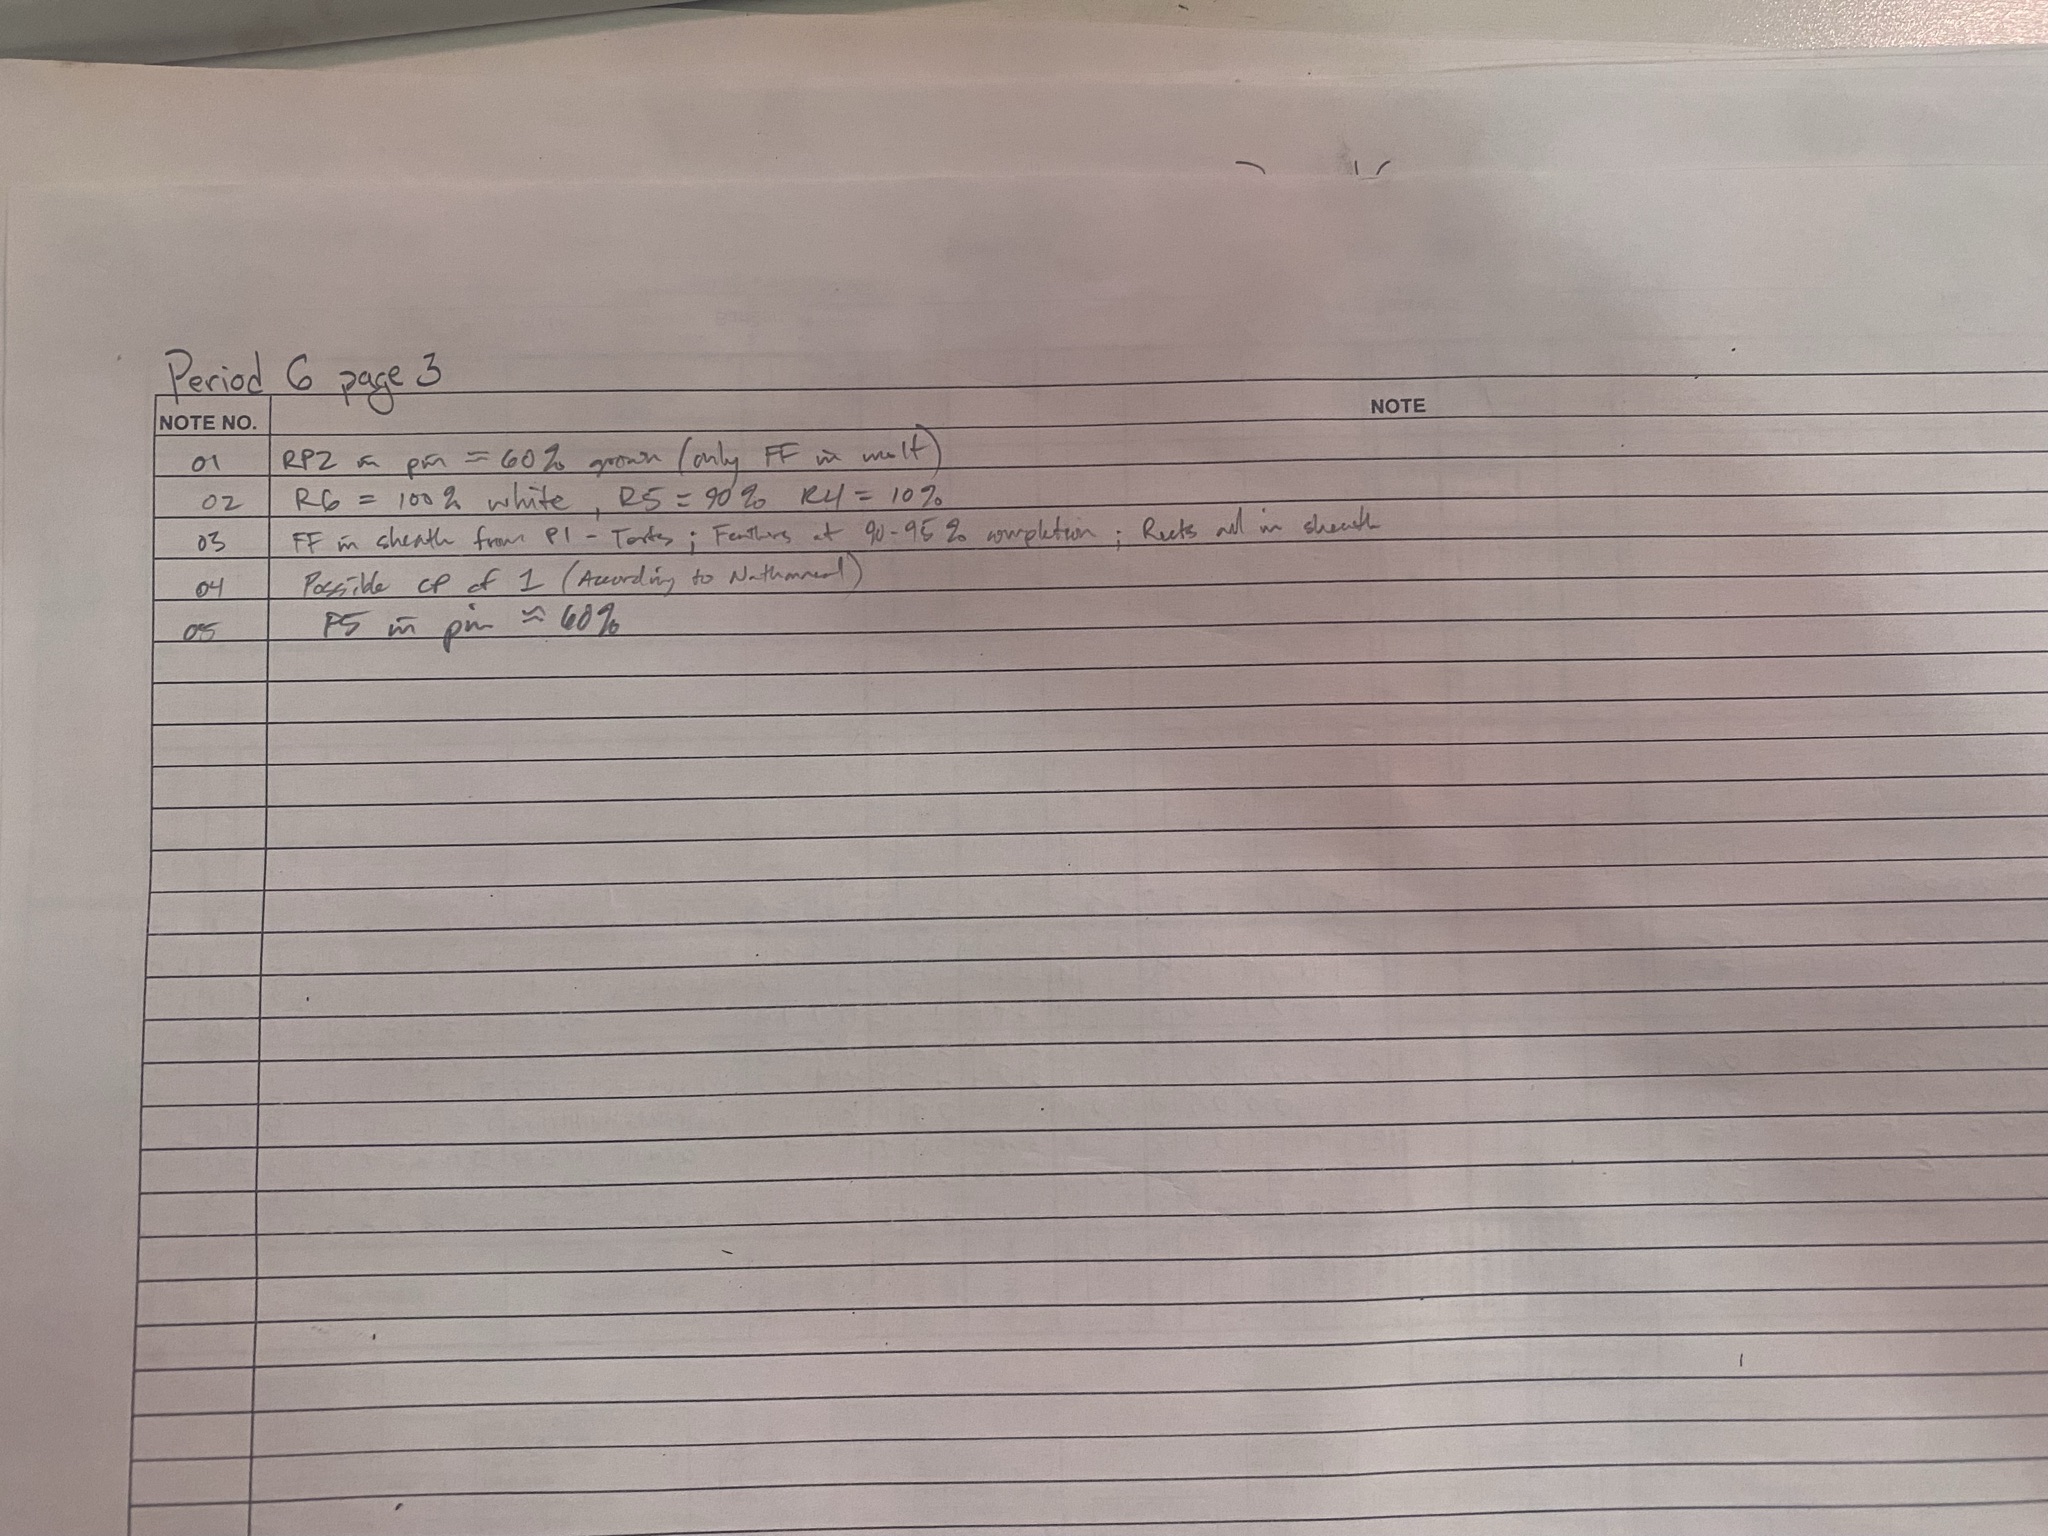 Period 6 page 3
NOTE NO. NOTE
01 RP2 in pin = 60% grown (only FF in molt)
02 R6 = 100% white, R5 = 90% R4 = 10%
03 FF in sheath from P1 - Terts; Feathers at 90-95% completion; Rects all in sheath
04 Possible CP of 1 (According to Nathanael)
05 P5 in pin ≈ 60%